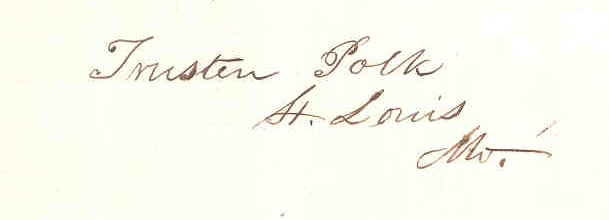 Trusten Polk
St. Louis
Mo.